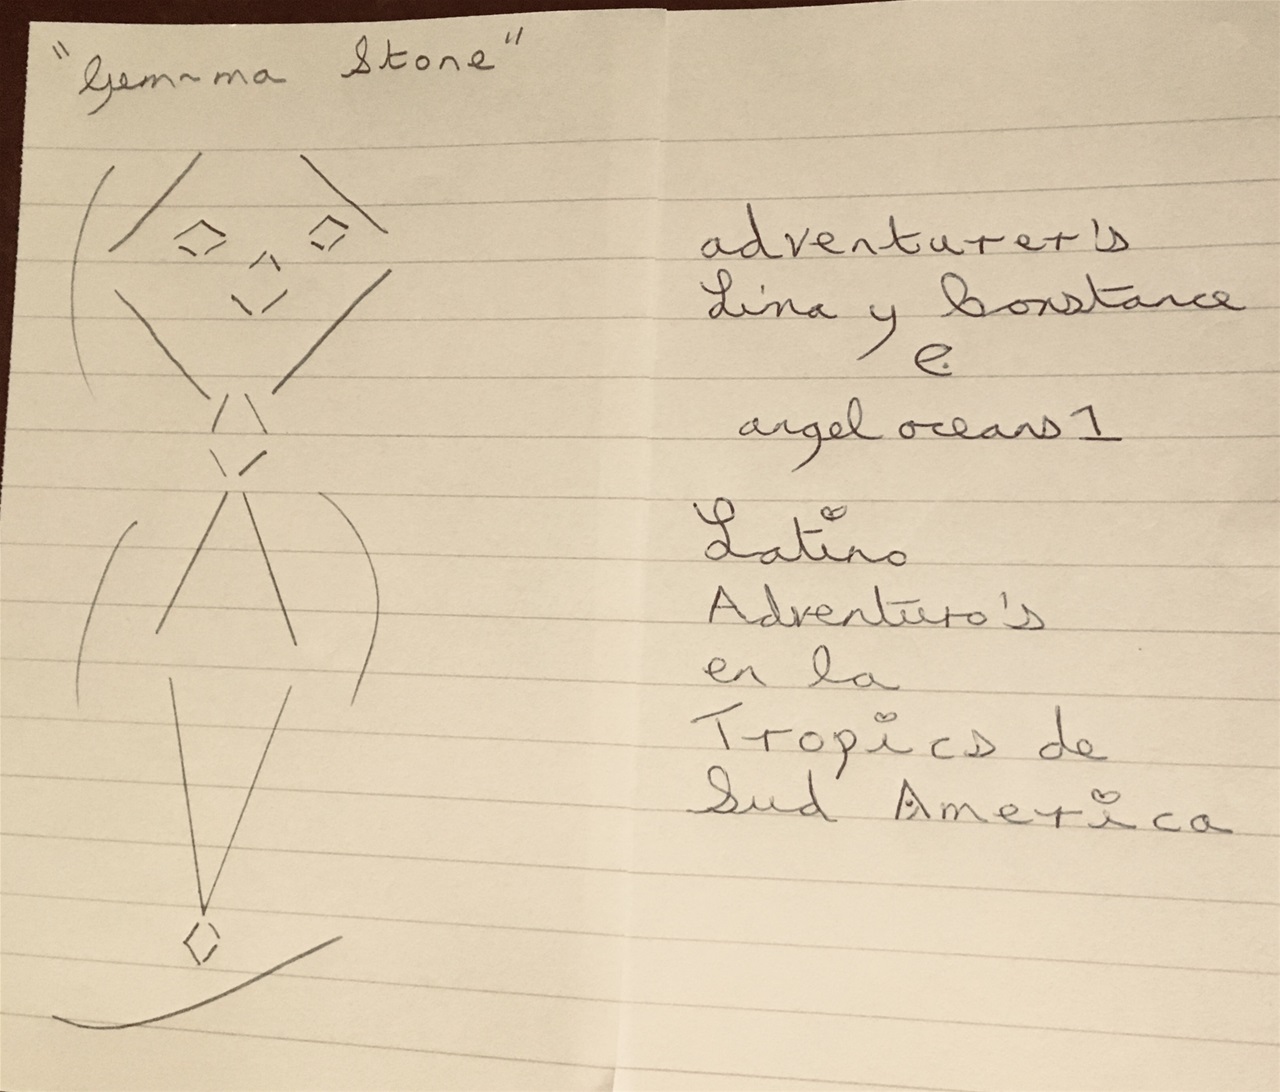 "Gem-ma Stone"
adventurer's
Lina y Constance
e
angel oceans 1
Latino
Adventuro's
en la
Tropics de
Sud America